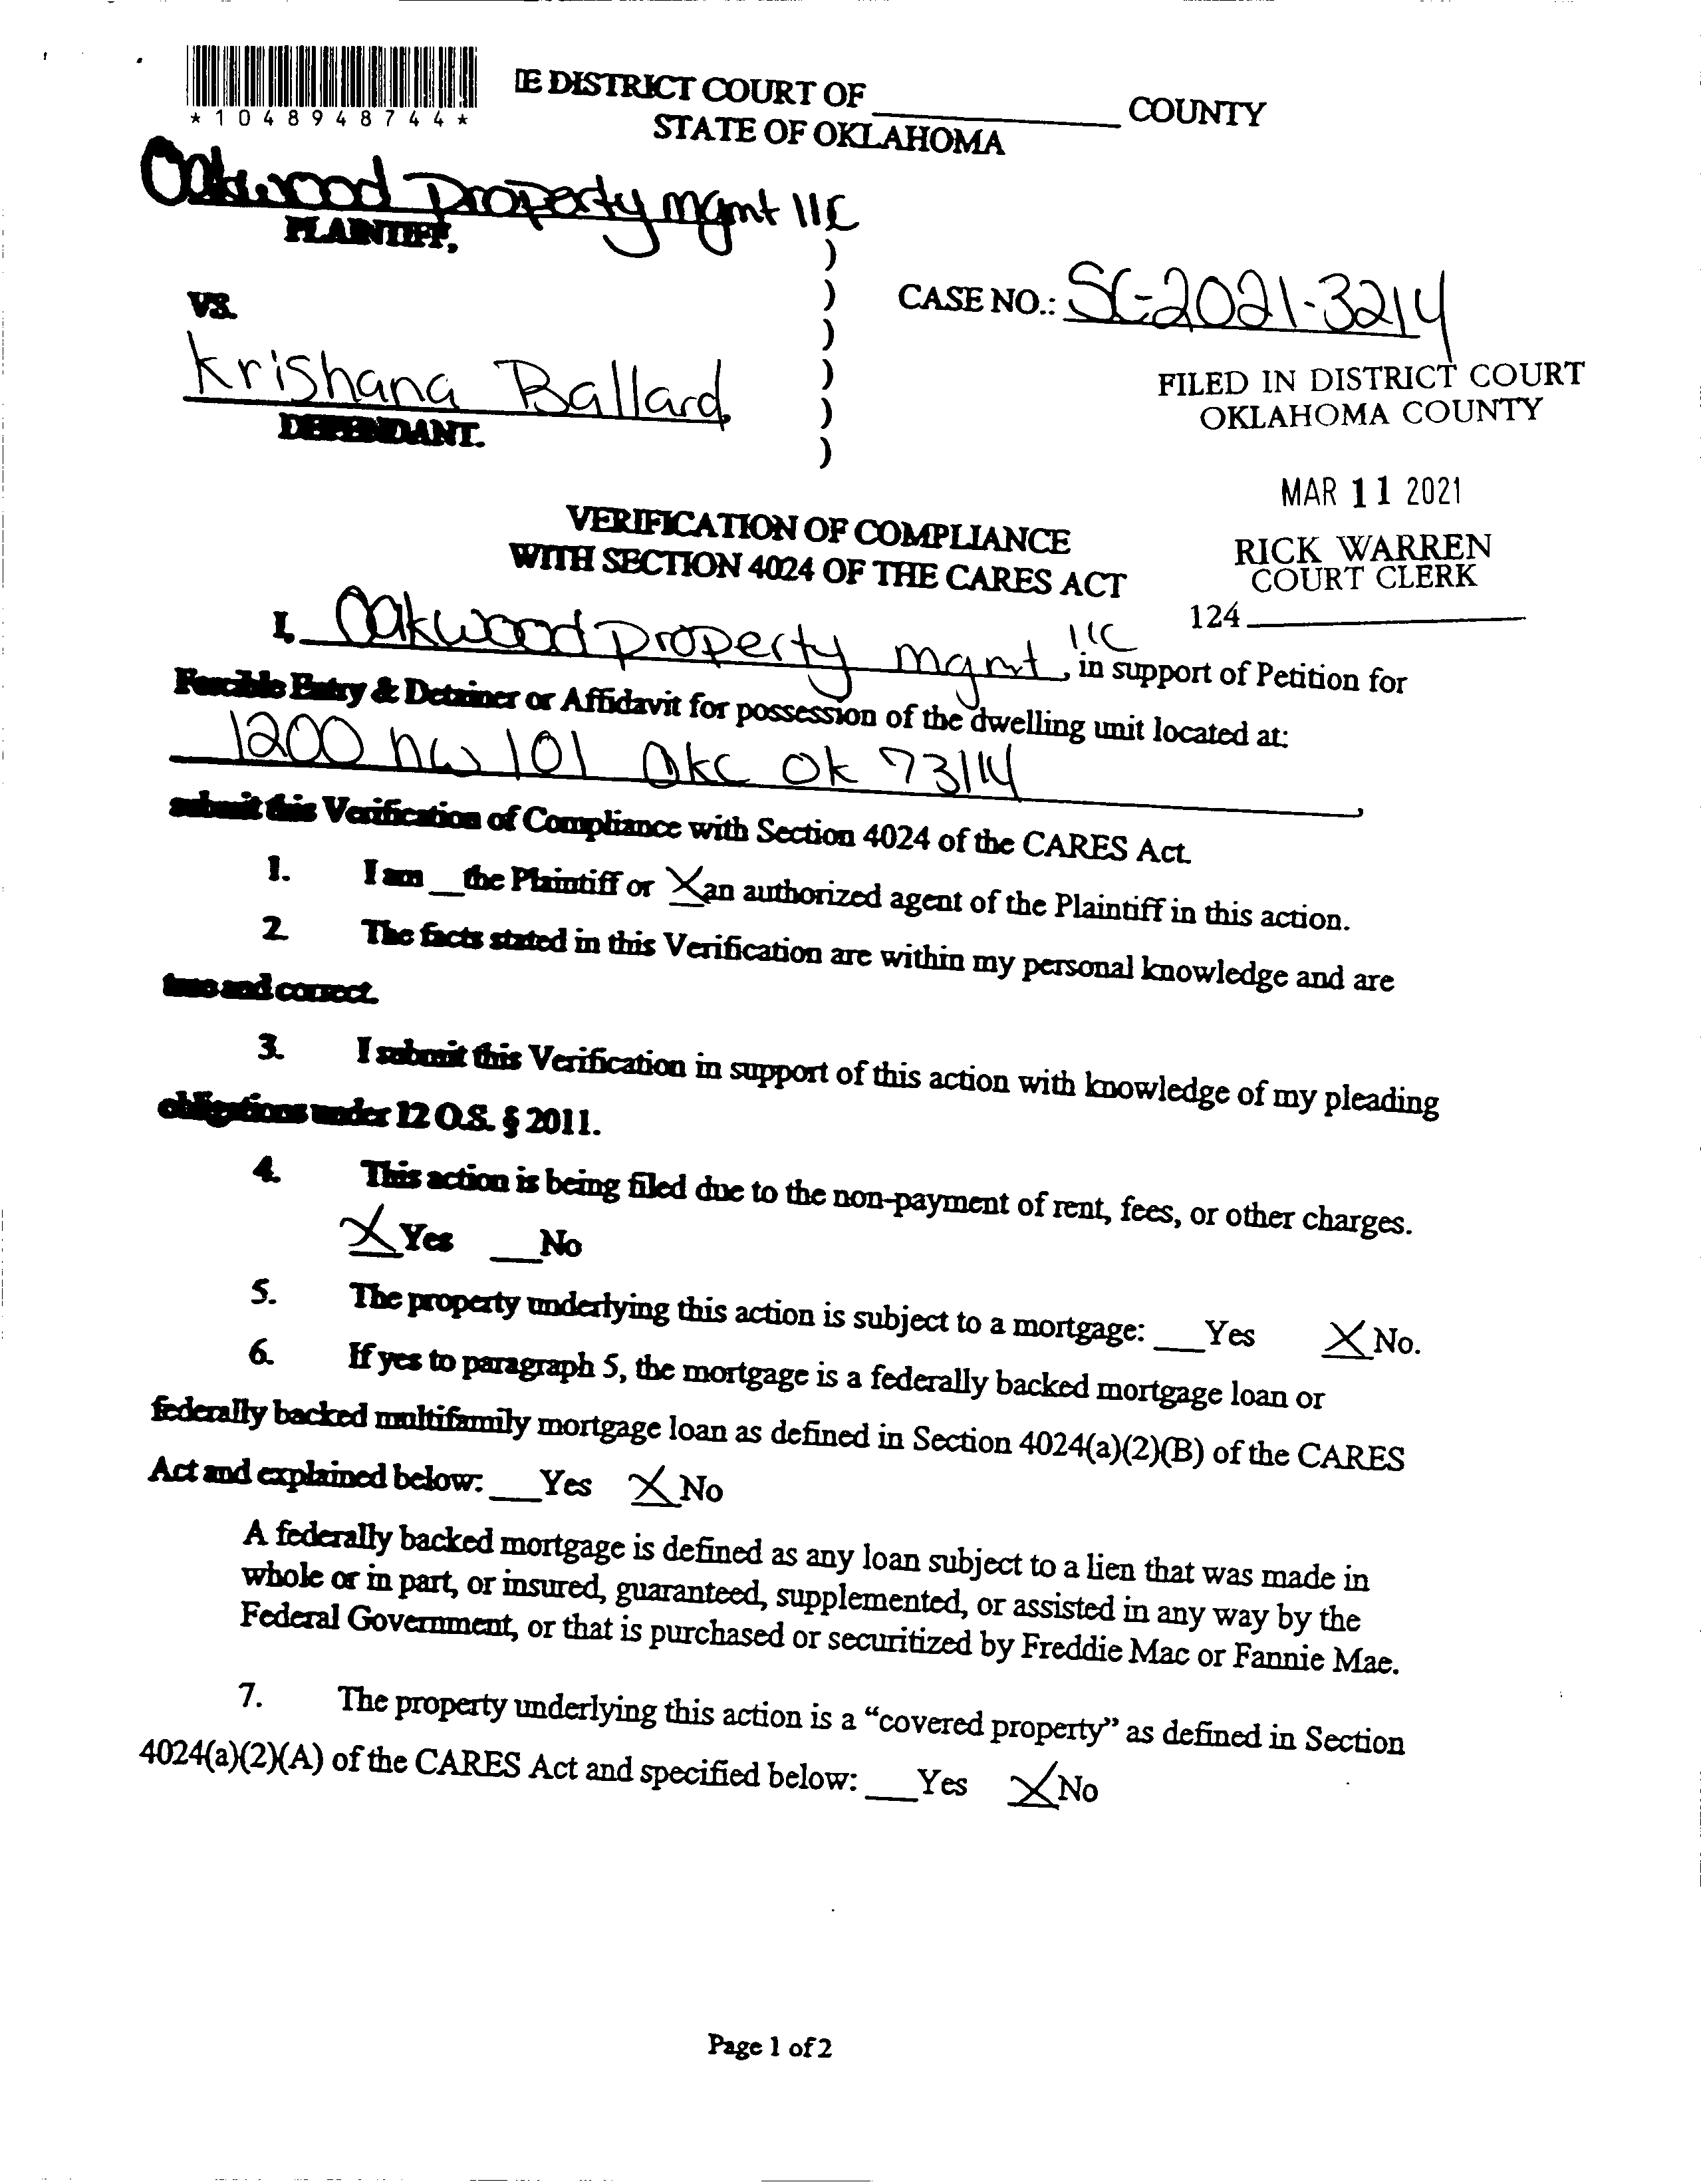 *1048948744*
IE DISTRICT COURT OF ____________ COUNTY
STATE OF OKLAHOMA
Oakwood Property mgmt llc
PLAINTIFF,
)
VS.
)
CASE NO.: SC-2021-3214
)
Krishana Ballard
)
FILED IN DISTRICT COURT
OKLAHOMA COUNTY
)
DEFENDANT.
)
MAR 11 2021
VERIFICATION OF COMPLIANCE
WITH SECTION 4024 OF THE CARES ACT
RICK WARREN
COURT CLERK
124____________
I, Oakwood property mgmt llc, in support of Petition for
Forcible Entry & Detainer or Affidavit for possession of the dwelling unit located at:
1200 nw 101 Okc Ok 73114,
submit this Verification of Compliance with Section 4024 of the CARES Act.
1. I am __the Plaintiff or X an authorized agent of the Plaintiff in this action.
2. The facts stated in this Verification are within my personal knowledge and are
true and correct.
3. I submit this Verification in support of this action with knowledge of my pleading
obligations under 12 O.S. § 2011.
4. This action is being filed due to the non-payment of rent, fees, or other charges.
X Yes ___No
5. The property underlying this action is subject to a mortgage: ___Yes X No.
6. If yes to paragraph 5, the mortgage is a federally backed mortgage loan or
federally backed multifamily mortgage loan as defined in Section 4024(a)(2)(B) of the CARES
Act and explained below: ___Yes X No
A federally backed mortgage is defined as any loan subject to a lien that was made in
whole or in part, or insured, guaranteed, supplemented, or assisted in any way by the
Federal Government, or that is purchased or securitized by Freddie Mac or Fannie Mae.
7. The property underlying this action is a “covered property” as defined in Section
4024(a)(2)(A) of the CARES Act and specified below: ___Yes X No
Page 1 of 2